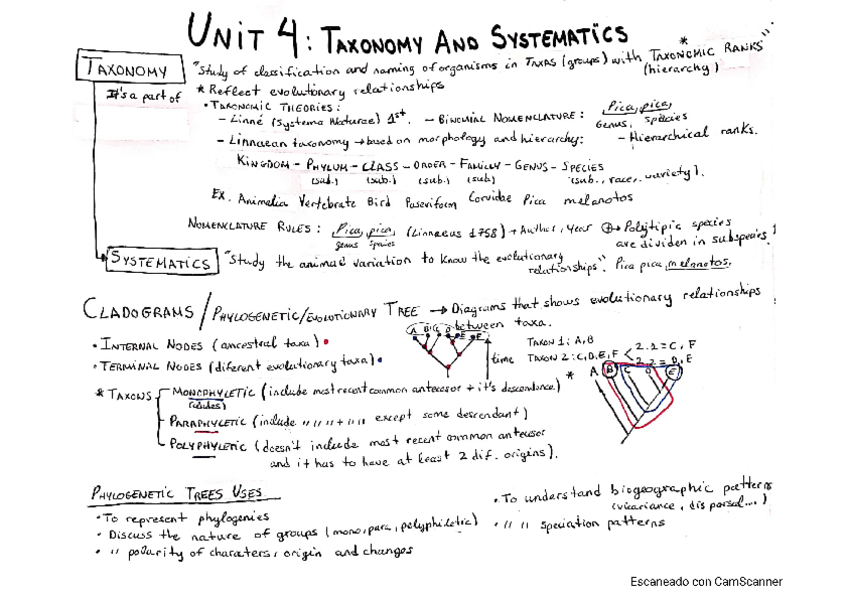 UNIT 4: TAXONOMY AND SYSTEMATICS
TAXONOMY "Study of classification and naming of organisms in TAXAS (groups) with TAXONOMIC RANKS".
(hierarchy)
It's a part of
* Reflect evolutionary relationships
• TAXONOMIC THEORIES:
- Linné (Systema Naturae) 1st. - BINOMIAL NOMENCLATURE: Pica, pica,
Genus, species
- Linnaean taxonomy → based on morphology and hierarchy: - Hierarchical ranks.
KINGDOM - PHYLUM - CLASS - ORDER - FAMILY - GENUS - SPECIES
(sub.) (sub.) (sub.) (sub) (sub., race, variety).
Ex. Animalia Vertebrate Bird Passeriform Corvidae Pica melanotos
NOMENCLATURE RULES: Pica, pica, (Linnaeus 1758) → Author, Year Polytipic species
genus species
are dividen in subspecies!
SYSTEMATICS "Study the animal variation to know the evolutionary
relationships". Pica pica, melanotos.
CLADOGRAMS / PHYLOGENETIC/EVOLUTIONARY TREE → Diagrams that shows evolutionary relationships
between taxa.
A B C D E F
• INTERNAL NODES (ancestral taxa) •
time
TAXON 1: A, B
TAXON 2: C, D, E, F < 2.1 = C, F
2.2 = D, E
• TERMINAL NODES (diferent evolutionary taxa) •
A B C D E
* TAXONS
MONOPHYLETIC (include most recent common antecesor + it's descendance) *
(clades)
PARAPHYLETIC (include " " " + " " except some descendant)
POLYPHYLETIC (doesn't include most recent common antecesor
and it has to have at least 2 dif. origins).
PHYLOGENETIC TREES USES
• To represent phylogenies
• Discuss the nature of groups (mono, para, polyphiletic)
• " polarity of charaters, origin and changes
• To understand biogeographic patterns
(vicariance, dispersal...)
• " " speciation patterns
Escaneado con CamScanner